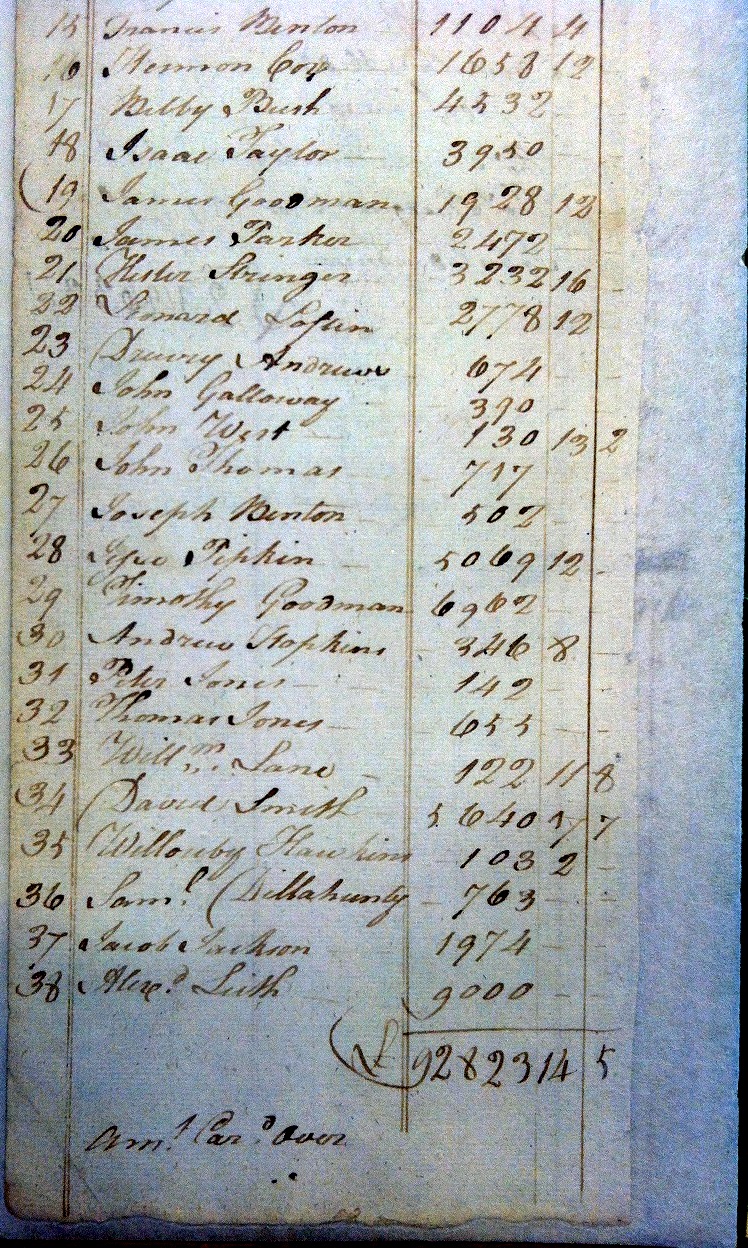 15 Francis Benton 1104 4
16 Hermon Cox 1658 12
17 Bilby Bush 4532
18 Isaac Taylor 3950
19 James Goodman 1928 12
20 James Parker 2472
21 Hester Stringer 3232 16
22 Leonard Loftin 2778 12
23 Drewry Andrews 674
24 John Galloway 390
25 John West 130 13 2
26 John Thomas 717
27 Joseph Benton 502
28 Pipkin 5069 12
29 Timothy Goodman 6962
30 Andrew Hopkins 346 8
31 Peter Jones 142
32 Thomas Jones 655
33 Willm. Lane 122 11 8
34 David Smith 5640 17 7
35 Willouby Hawkins 103 2
36 Saml. Dillahunty 763
37 Jacob Jackson 1974
38 Alexd. Leith 9000
£ 92823 14 5
Amt. Card. Over